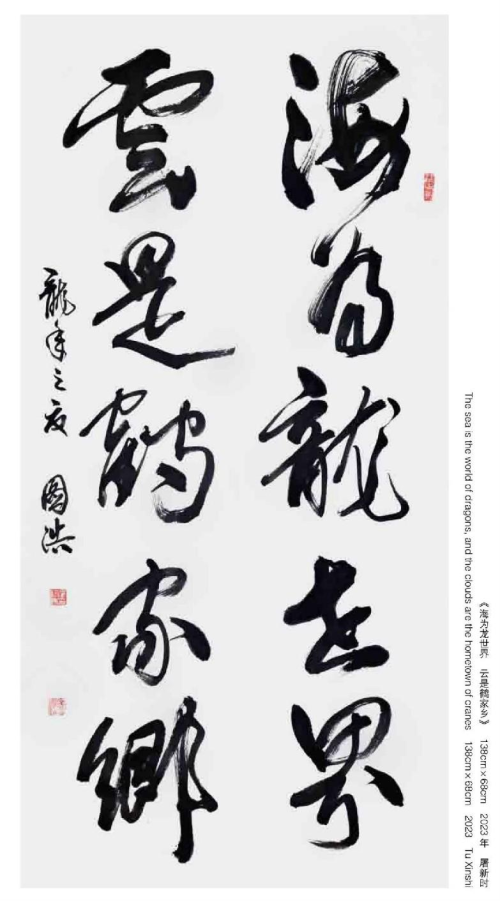 海為龍世界
雲是鶴家鄉
龍年之夏 國浩
《海为龙世界 云是鹤家乡》 138cm×68cm 2023年 屠新时
The sea is the world of dragons, and the clouds are the hometown of cranes 138cm×68cm 2023 Tu Xinshi